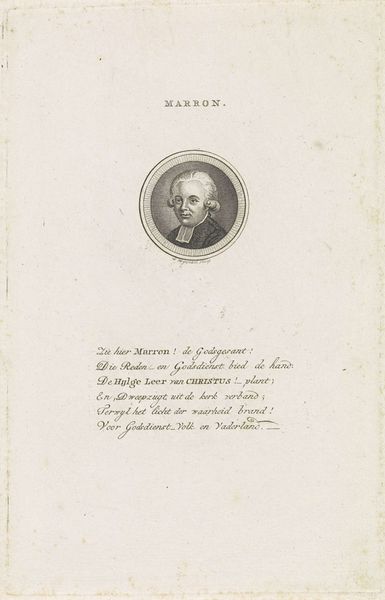 MARRON.
Zie hier Marron! de Godsgesant!
Die Reden en Godsdienst bied de hand.
De Hijlge Leer van CHRISTUS! plant;
En Dweepzugt uit de kerk verband;
Terwyl het licht der waarheid brand!
Voor Godsdienst Volk en Vaderland.